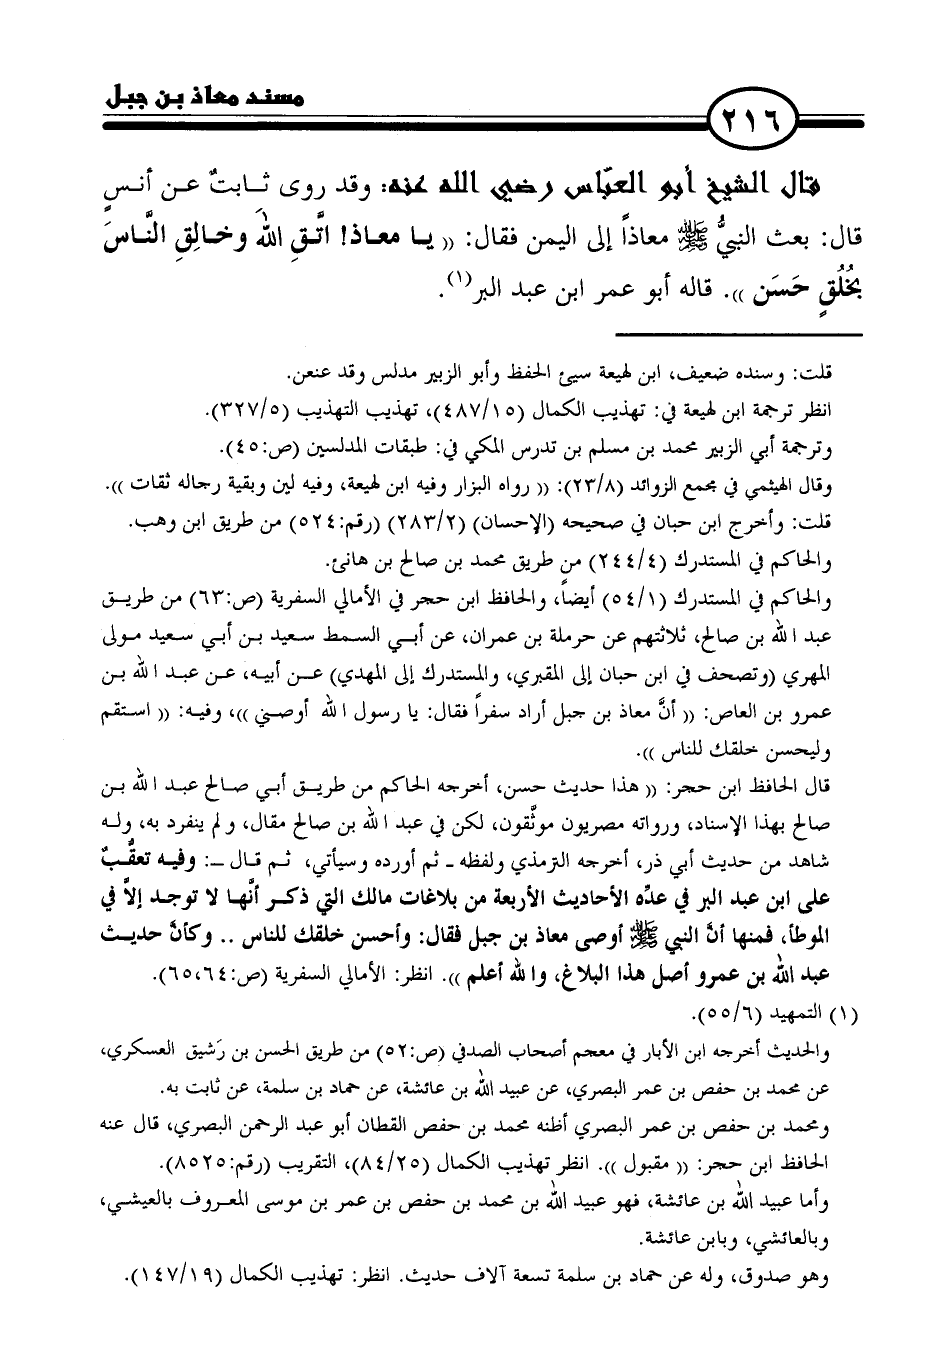 مسند معاذ بن جبل
٢١٦
قال الشيخ أبو العبّاس رضي الله عنه: وقد روى ثابتٌ عن أنسٍ
قال: بعث النبيُّ ﷺ معاذاً إلى اليمن فقال: (( يا معاذ! اتَّقِ اللهَ وخالِقِ النَّاسَ
بخُلُقٍ حَسَن )). قاله أبو عمر ابن عبد البر(١).
قلت: وسنده ضعيف، ابن لهيعة سيئ الحفظ وأبو الزبير مدلس وقد عنعن.
انظر ترجمة ابن لهيعة في: تهذيب الكمال (٤٨٧/١٥)، تهذيب التهذيب (٣٢٧/٥).
وترجمة أبي الزبير محمد بن مسلم بن تدرس المكي في: طبقات المدلسين (ص:٤٥).
وقال الهيثمي في مجمع الزوائد (٢٣/٨): (( رواه البزار وفيه ابن لهيعة، وفيه لين وبقية رجاله ثقات )).
قلت: وأخرج ابن حبان في صحيحه (الإحسان) (٢٨٣/٢) (رقم:٥٢٤) من طريق ابن وهب.
والحاكم في المستدرك (٢٤٤/٤) من طريق محمد بن صالح بن هانئ.
والحاكم في المستدرك (٥٤/١) أيضاً، والحافظ ابن حجر في الأمالي السفرية (ص:٦٣) من طريق
عبد الله بن صالح، ثلاثتهم عن حرملة بن عمران، عن أبي السمط سعيد بن أبي سعيد مولى
المهري (وتصحف في ابن حبان إلى المقبري، والمستدرك إلى المهدي) عن أبيه، عن عبد الله بن
عمرو بن العاص: (( أنَّ معاذ بن جبل أراد سفراً فقال: يا رسول الله أوصني ))، وفيه: (( استقم
وليحسن خلقك للناس )).
قال الحافظ ابن حجر: (( هذا حديث حسن، أخرجه الحاكم من طريق أبي صالح عبد الله بن
صالح بهذا الإسناد، ورواته مصريون موثَّقون، لكن في عبد الله بن صالح مقال، ولم ينفرد به، وله
شاهد من حديث أبي ذر، أخرجه الترمذي ولفظه ـ ثم أورده وسيأتي، ثم قال ـ: وفيه تعقُّبٌ
على ابن عبد البر في عدِّه الأحاديث الأربعة من بلاغات مالك التي ذكر أنَّها لا توجد إلاَّ في
الموطأ، فمنها أنَّ النبي ﷺ أوصى معاذ بن جبل فقال: وأحسن خلقك للناس .. وكأنَّ حديث
عبد الله بن عمرو أصل هذا البلاغ، والله أعلم )). انظر: الأمالي السفرية (ص:٦٤،٦٥).
(١) التمهيد (٥٥/٦).
والحديث أخرجه ابن الأبار في معجم أصحاب الصدفي (ص:٥٢) من طريق الحسن بن رَشيق العسكري،
عن محمد بن حفص بن عمر البصري، عن عبيد الله بن عائشة، عن حماد بن سلمة، عن ثابت به.
ومحمد بن حفص بن عمر البصري أظنه محمد بن حفص القطان أبو عبد الرحمن البصري، قال عنه
الحافظ ابن حجر: (( مقبول )). انظر تهذيب الكمال (٨٤/٢٥)، التقريب (رقم:٨٥٢٥).
وأما عبيد الله بن عائشة، فهو عبيد الله بن محمد بن حفص بن عمر بن موسى المعروف بالعيشي،
وبالعائشي، وبابن عائشة.
وهو صدوق، وله عن حماد بن سلمة تسعة آلاف حديث. انظر: تهذيب الكمال (١٤٧/١٩).